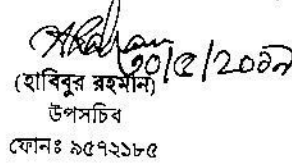 ২০/৫/২০১৭
(হাবিবুর রহমান)
উপসচিব
ফোনঃ ৯৫৭২১৮৫